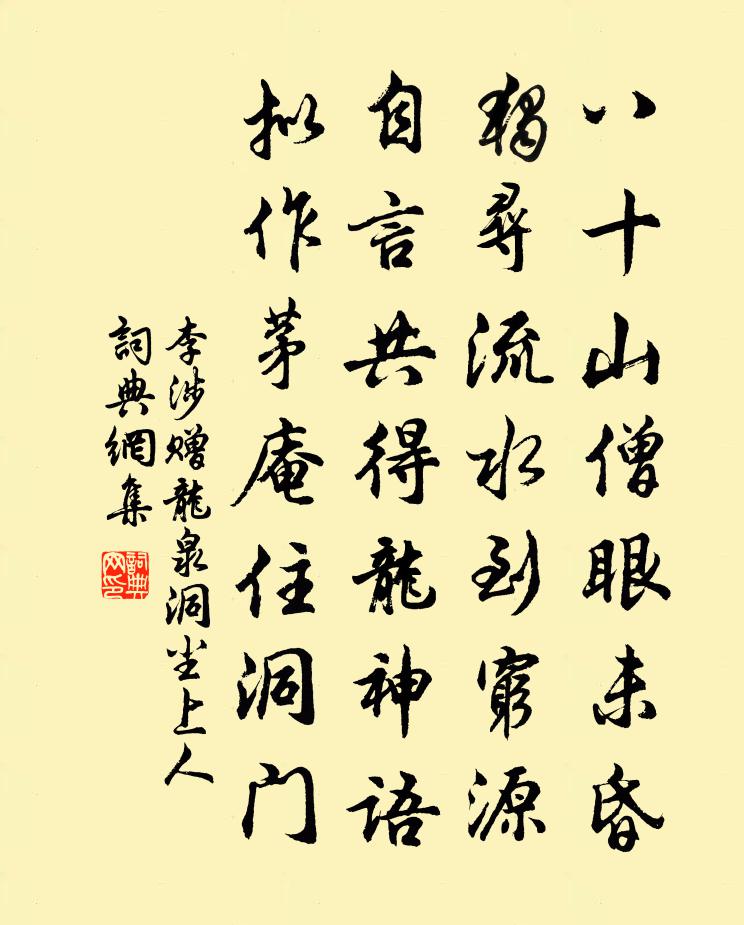 八十山僧眼未昏
獨尋流水到窮源
自言共得龍神語
拟作茅庵住洞門
李涉赠龍泉洞尘上人
詞典網集
詞典網印